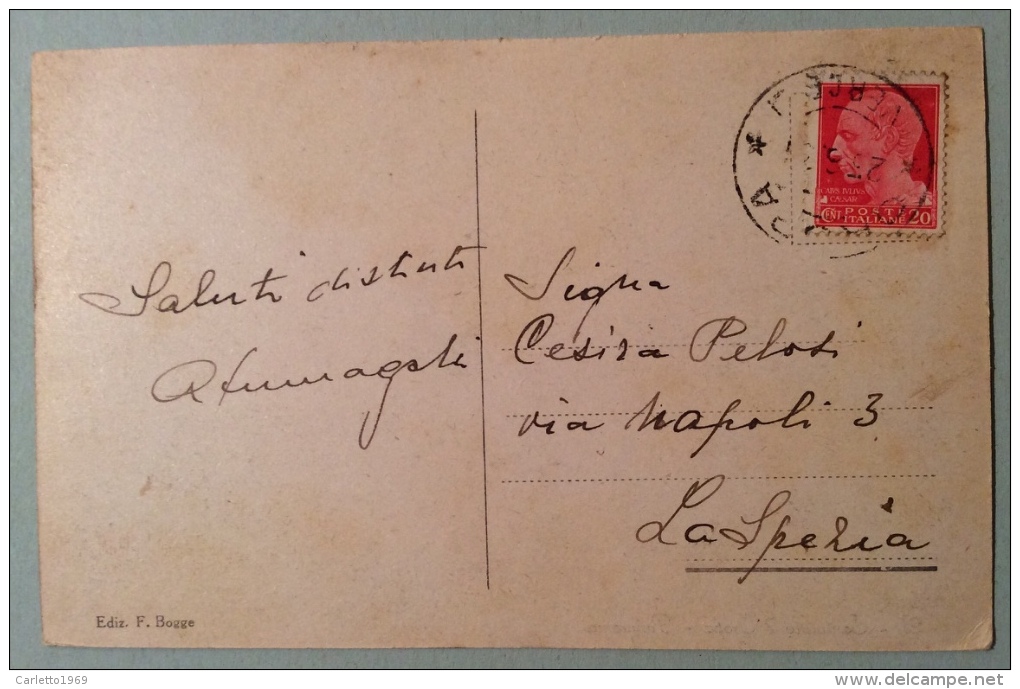 Saluti distinti
Sigra
Cesira Pelosi
via Napoli 3
La Spezia
CAIVS IVLIVS
CAESAR
CENT. POSTE ITALIANE 20
Ediz. F. Bogge
Carletto1969
www.delcampe.net